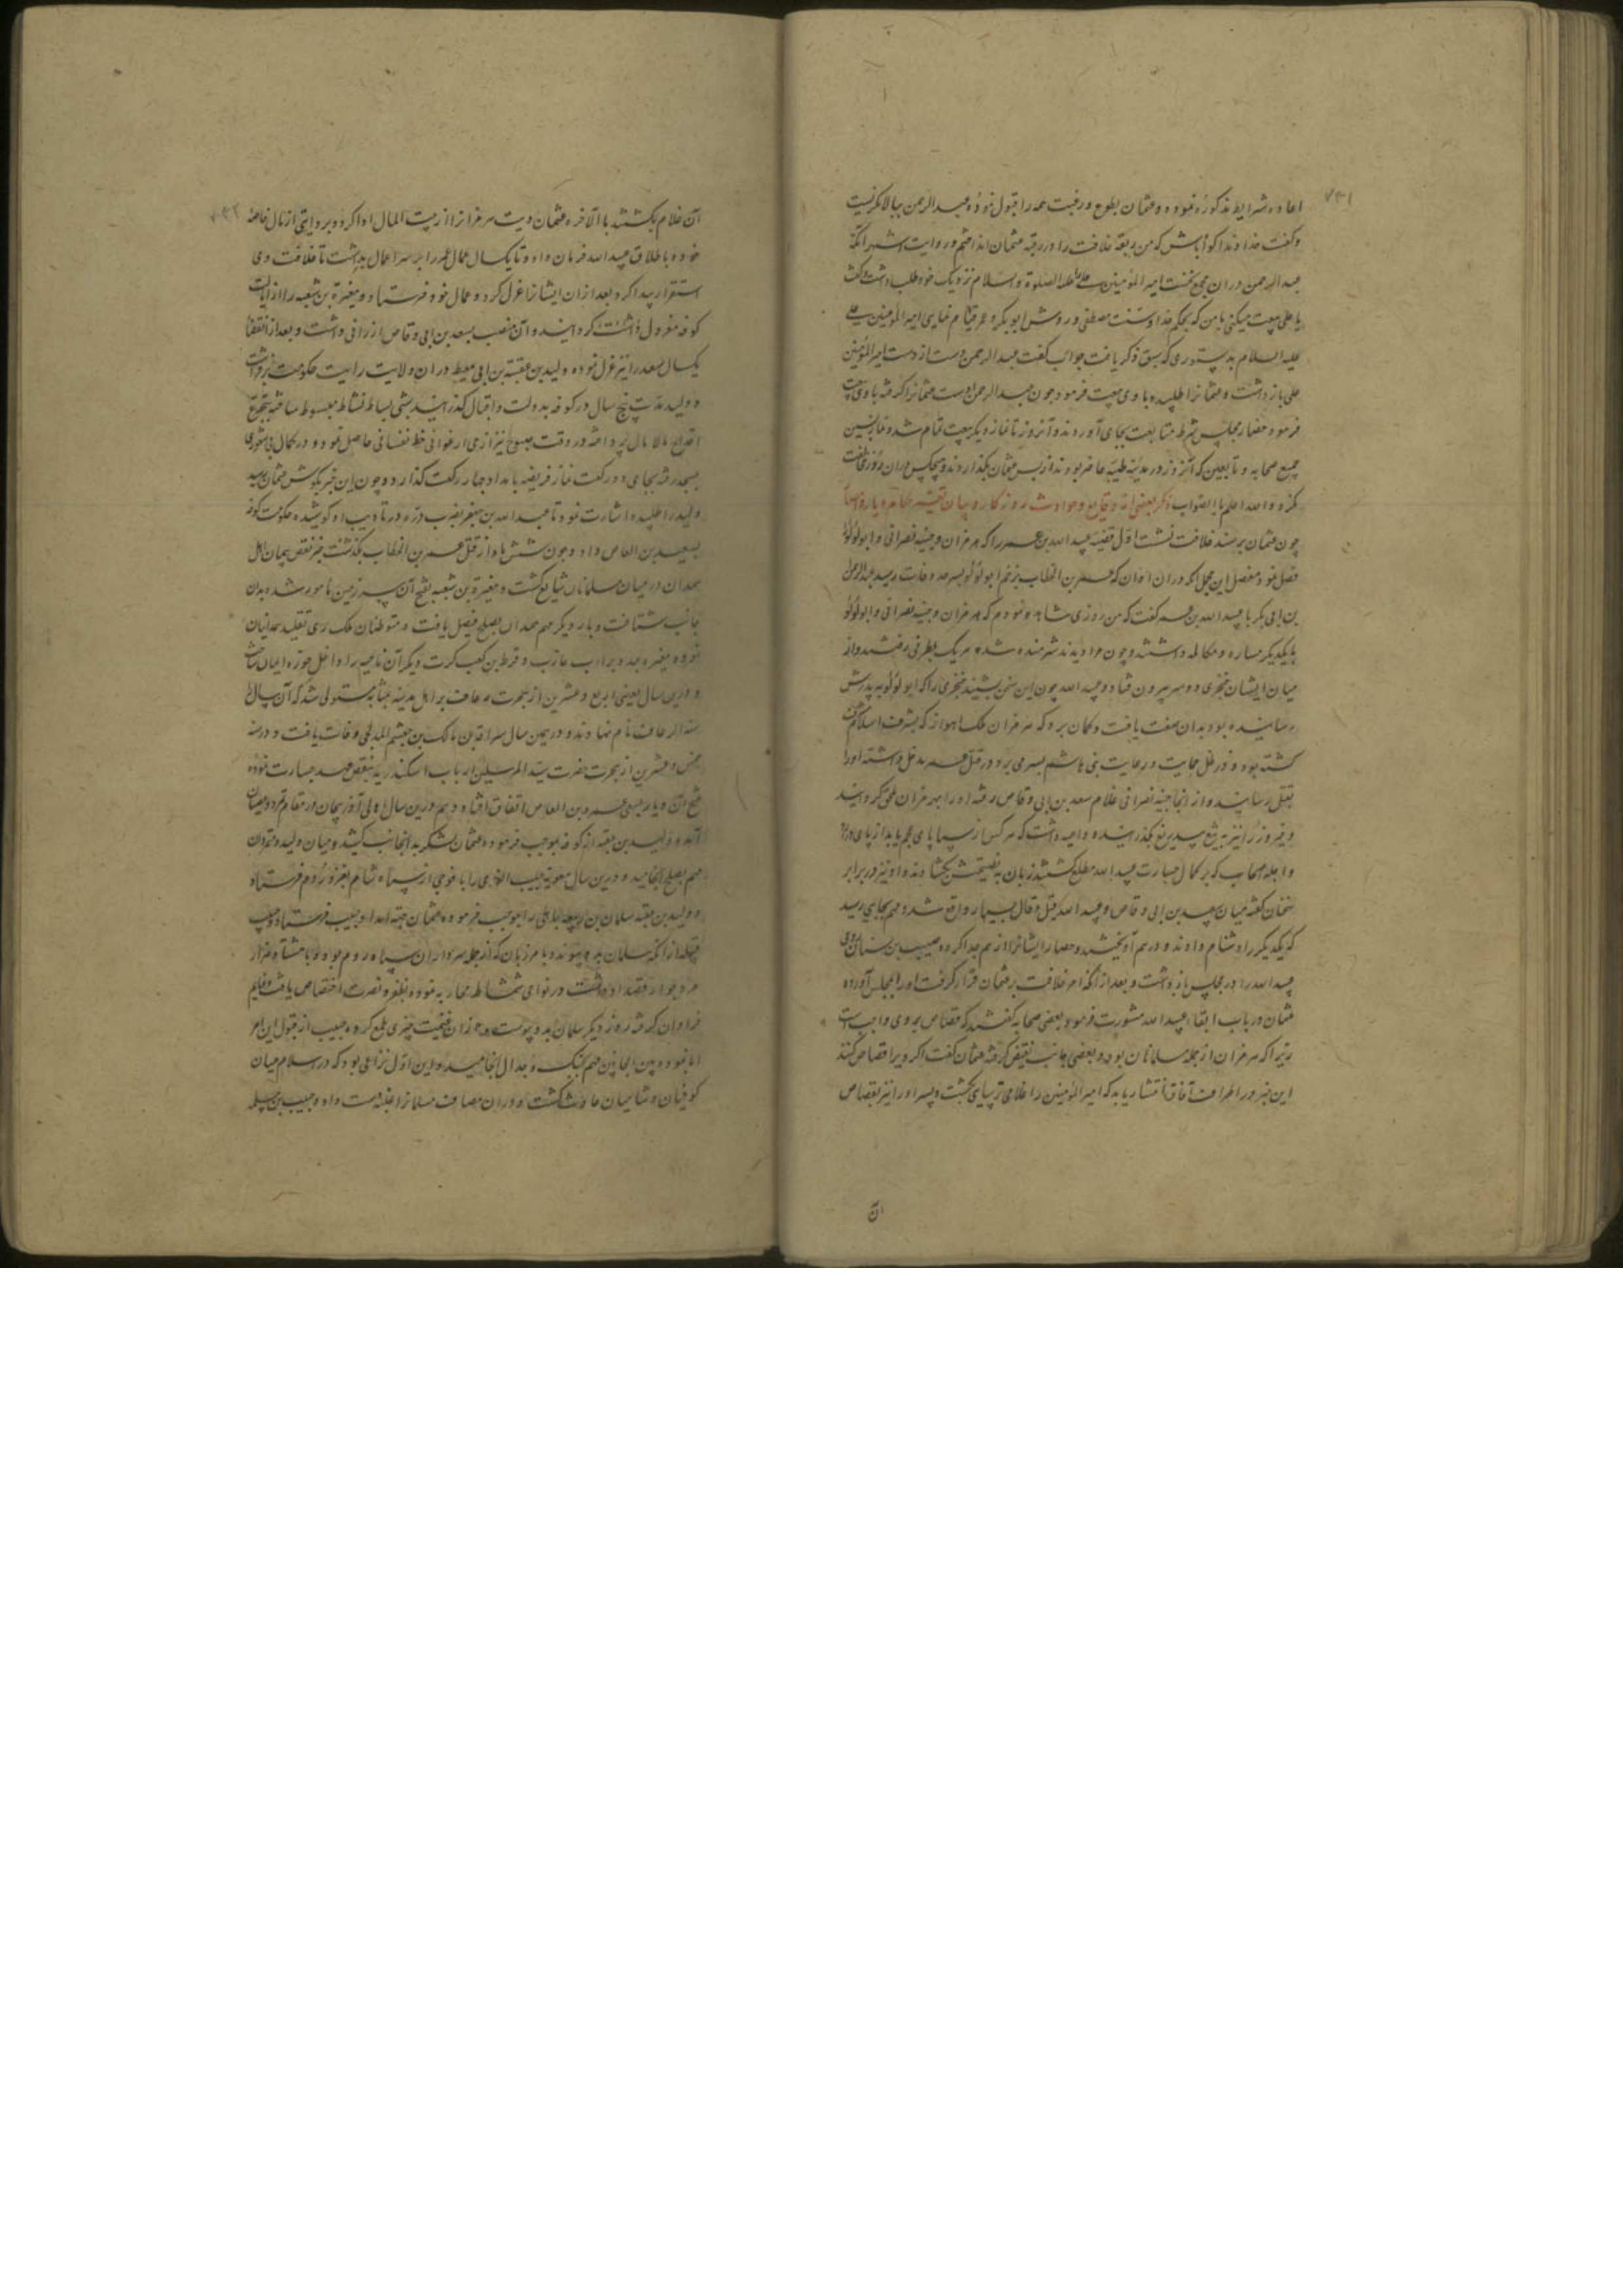 ۷۳۱
اعاده شرایط مذکوره نموده و عثمان بطوع و رغبت همه را قبول نموده عبدالرحمن ببالا نکریست
و کفت خداوندا کواه باش که من ربقه خلافت را در رقبه عثمان انداختم و روایت اشهر انکه
عبدالرحمن دران مجمع نخست امیر المؤمنین علی را علیه الصلوة و السلام نزدیک خود طلب داشت و کفت
یا علی بیعت میکنی با من که بحکم خدا و سنت مصطفی و روش ابوبکر و عمر قیام نمایی امیر المؤمنین علی
علیه السلام بدستوری که سبق ذکر یافت جواب کفت عبدالرحمن دست از دست امیر المؤمنین
علی باز داشت و عثمانرا طلبیده با وی بیعت فرمود چون عبدالرحمن دست عثمانرا کرفته با وی بیعت
فرمود حضار مجلس شرط متابعت بجای آوردند و آنروز تا نماز دیکر بیعت تمام شد و نماز پسین
جمیع صحابه و تابعین که آنروز در مدینه طیبه حاضر بودند از پس عثمان بکذاردند و هیچکس دران روز مخالفت
نکرد والله اعلم بالصواب ذکر بعضی از وقایع و حوادث روزکار و بیان
چون عثمان بر مسند خلافت نشست اول قضیه عبیدالله بن عمر را که هرمزان و جفینه نصرانی و ابولؤلؤ
فصل نمود مفصل این مجمل انکه دران اوان که عمر بن الخطاب بزخم ابولؤلؤ بسرحد وفات رسید عبدالرحمن
بن ابی بکر با عبیدالله بن عمر کفت که من روزی مشاهده نمودم که هرمزان و جفینه نصرانی و ابولؤلؤ
با یکدیکر مساره و مکالمه داشتند و چون مرا دیدند شرمنده شده هر یک بطرفی رفتند و از
میان ایشان خنجری دو سر بیرون فتاد و عبیدالله چون این سخن بشنید خنجری را که ابولؤلؤ به پدرش
رسانیده بود بدان صفت یافت و کمان برد که هرمزان ملک اهواز که بشرف اسلام مشرف
کشته بود و در ظل حمایت و رعایت بنی هاشم بسر می برد در قتل عمر مدخل داشته او را
بقتل رسانید و از انجا جفینه نصرانی غلام سعد بن ابی وقاص رفته او را بهرمزان ملحق کردانید
و فیروز را نیز بتیغ بیدریغ بکذرانیده داعیه داشت که هر کس از سبایای عجم یابد از پای درآرد
و اجله اصحاب که بر کمال جسارت عبیدالله مطلع کشتند زبان به نصیحتش بکشادند و او نیز در برابر
سخنان کفته میان سعد بن ابی وقاص و عبیدالله قیل و قال بسیار واقع شد و مهم بجایی رسید
که یکدیکر را دشنام دادند و درهم آویختند و حضار ایشانرا از هم جدا کرده صهیب بن سنان رومی
عبیدالله را در مجلس باز داشت و بعد از انکه امر خلافت بر عثمان قرار کرفت او را بمجلس آورده
عثمان در باب ابقاء عبیدالله مشورت فرمود بعضی صحابه کفتند که قصاص بر وی واجب است
زیرا که هرمزان از جمله مسلمانان بود و بعضی جانب نقیض کرفته عثمان کفت اکر ویرا قصاص کنند
این خبر در اطراف آفاق انتشار یابد که امیر المؤمنین را غلامی ترسایی بکشت و پسر او را نیز بقصاص
آن
۷۳۲
آن غلام بکشتند بالآخره عثمان دیت هرمزانرا از بیت المال ادا کرد و بروایتی از مال خاصه
خود و باطلاق عبیدالله فرمان داد و تا یکسال عمال عمر را بر سر اعمال بداشت تا خلافت وی
استقرار پیدا کرد بعد ازان ایشانرا عزل کرد و عمال خود فرستاد و مغیرة بن شعبه را از ایالت
کوفه معزول کردانید و آن منصب بسعد بن ابی وقاص ارزانی داشت و بعد از انقضا
یکسال سعد را نیز عزل نموده ولید بن عقبة بن ابی معیط دران ولایت رایت حکومت برافراشت
و ولید مدت پنج سال در کوفه بدولت و اقبال کذرانید شبی بساط نشاط مبسوط ساخته بتجرع
اقداح مالامال پرداخته در وقت صبوح نیز از می ارغوانی حظ نفسانی حاصل نمود و در کمال بی شعوری
بمسجد رفته بجای دو رکعت نماز فریضه بامداد چهار رکعت کذارد و چون این خبر بکوش عثمان رسید
ولید را طلبیده اشارت نمود تا عبدالله بن جعفر بضرب دره در تادیب او کوشیده حکومت کوفه
بسعید بن العاص داد و چون شش ماه از قتل عمر بن الخطاب بکذشت خبر نقض پیمان اهل
همدان در میان مسلمانان شایع کشت و مغیرة بن شعبه بفتح آن سرزمین مامور شده بدان
جانب شتافت و بار دیکر مهم همدان بصلح فیصل یافت و متوطنان ملک ری تقلید همدانیان
نموده مغیره بمدد براء بن عازب و قرظ بن کعب کرت دیکر آن ناحیه را داخل حوزه ایمان ساخت
و درین سال یعنی اربع و عشرین از هجرت رعاف بر اهل مدینه بمثابه مستولی شد که آن سال را
سنة الرعاف نام نهادند و در همین سال سراقة بن مالک بن جعشم المدلجی وفات یافت و در سنه
خمس و عشرین از هجرت حضرت سید المرسلین ارباب اسکندریه بنقض عهد جسارت نموده
فتح آن دیار بسعی عمرو بن العاص اتفاق افتاد و هم درین سال اهالی آذربیجان در مقام تمرد و عصیان
آمده ولید بن عقبه از کوفه بموجب فرموده عثمان لشکر بدانجانب کشید و میان ولید و متمردان
مهم بصلح انجامید و درین سال معویه حبیب الفهری را با فوجی از سپاه شام بغزو روم فرستاد
و ولید بن عقبه سلمان بن ربیعه باهلی را بموجب فرموده عثمان جهة امداد حبیب فرستاد و حبیب
قبل از انکه سلمان بدو پیوندد با مرزبان که از جمله سرداران سپاه روم بود و با هشتاد هزار
مرد جرار قصد او داشت در نواحی شمشاط محاربه نموده بظفر و نصرت اختصاص یافت و غنایم
فراوان کرفته روز دیکر سلمان بدو پیوست و ازان غنیمت چیزی طمع کرده حبیب از قبول این امر
ابا نموده بین الجانبین مهم بجنک و جدال انجامید و این اول نزاعی بود که در اسلام میان
کوفیان و شامیان حادث کشت و دران مصاف مسلمانرا غلبه دست داده حبیب بن مسلمه